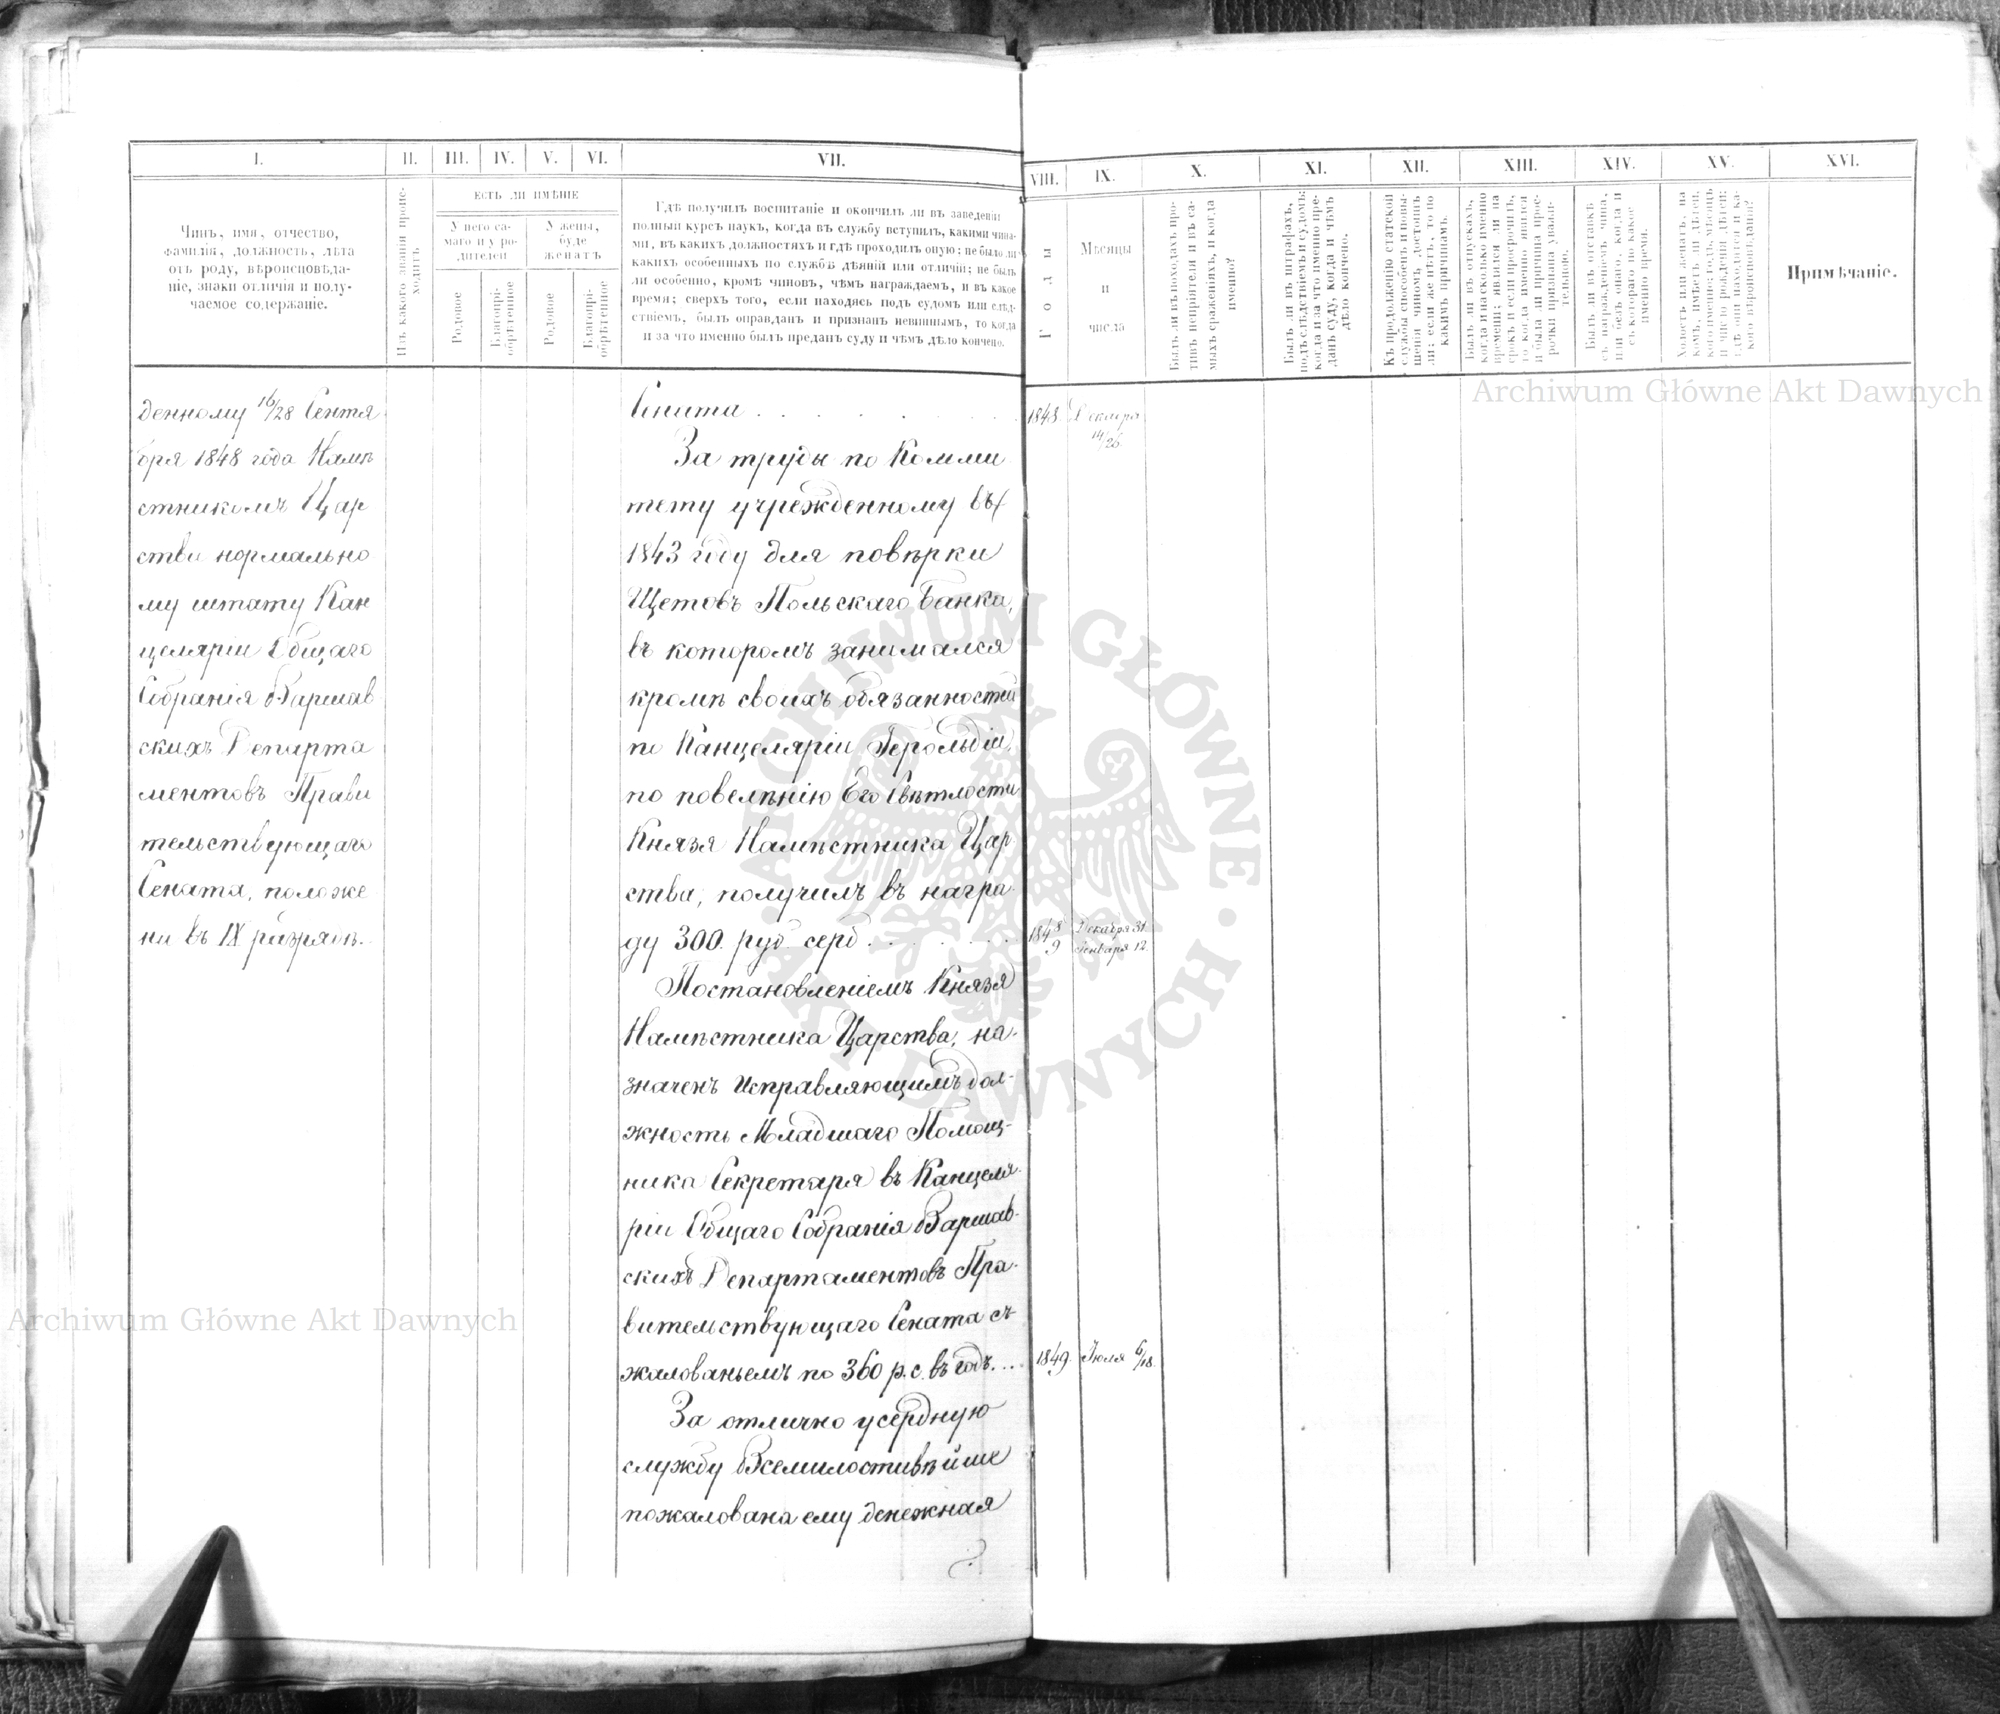 I.
II.
III.
IV.
V.
VI.
VII.
VIII.
IX.
X.
XI.
XII.
XIII.
XIV.
XV.
XVI.
Чинъ, имя, отчество,
фамилія, должность, лѣта
отъ роду, вѣроисповѣда-
ніе, знаки отличія и полу-
чаемое содержаніе.
Изъ какого званія проис-
ходитъ
ЕСТЬ ЛИ ИМѢНІЕ
У него са-
маго и у ро-
дителей
У жены,
буде
женатъ
Родовое
Благопрі-
обрѣтенное
Родовое
Благопрі-
обрѣтенное
Гдѣ получилъ воспитаніе и окончилъ ли въ заведеніи
полный курсъ наукъ, когда въ службу вступилъ, какими чина-
ми, въ какихъ должностяхъ и гдѣ проходилъ оную; не было ли
какихъ особенныхъ по службѣ дѣяній или отличій; не былъ
ли особенно, кромѣ чиновъ, чѣмъ награждаемъ, и въ какое
время; сверхъ того, если находясь подъ судомъ или слѣд-
ствіемъ, былъ оправданъ и признанъ невиннымъ, то когда
и за что именно былъ преданъ суду и чѣмъ дѣло кончено.
Годы
Мѣсяцы
и
числа
Былъ ли въ походахъ про-
тивъ непріятеля и въ са-
мыхъ сраженіяхъ, и когда
именно?
Былъ ли въ штрафахъ,
подъ слѣдствіемъ и судомъ;
когда и за что именно пре-
данъ суду, когда и чѣмъ
дѣло кончено.
Къ продолженію статской
службы способенъ и повы-
шенія чиномъ достоинъ
ли; если же нѣтъ, то по
какимъ причинамъ.
Былъ ли въ отпускахъ,
когда и насколько именно
времени; явился ли на
срокъ и если просрочилъ,
то когда именно явился
и была ли причина прос-
рочки признана уважи-
тельною.
Былъ ли въ отставкѣ
съ награжденіемъ чина,
или безъ онаго, когда и
съ котораго по какое
именно время.
Холостъ или женатъ, на
комъ, имѣетъ ли дѣтей,
кого именно; годъ, мѣсяцъ
и число рожденія дѣтей;
гдѣ они находятся и ка-
кого вѣроисповѣданія?
Примѣчаніе.
денному 16/28 Сентя
бря 1848 года Намѣ
стникомъ Цар
ства нормально
му штату Кан
целяріи Общаго
Собранія Варшав
скихъ Департа
ментовъ Прави
тельствующаго
Сената, положе
на въ IX разрядѣ.
Сената . . . . . . .
1848. Декабря
14/26
За труды по Комми
тету учрежденному въ
1843 году для повѣрки
Щетовъ Польскаго Банка,
въ которомъ занимался
кромѣ своихъ обязанностей
по Канцеляріи Герольдіи,
по повелѣнію Его Свѣтлости
Князя Намѣстника Цар
ства, получилъ въ награ-
ду 300. руб. сер. . . . . .
1848/9 Декабря 31
Января 12.
Постановленіемъ Князя
Намѣстника Царства, на-
значенъ Исправляющимъ дол-
жность Младшаго Помощ-
ника Секретаря въ Канцеля-
ріи Общаго Собранія Варшав-
скихъ Департаментовъ Пра-
вительствующаго Сената съ
жалованьемъ по 360 р.с. въ годъ. . .
1849. Іюля 6/18.
За отлично усердную
службу Всемилостивѣйше
пожалована ему денежная
Archiwum Główne Akt Dawnych
Archiwum Główne Akt Dawnych
ARCHIWUM GŁÓWNE · AKT DAWNYCH ·